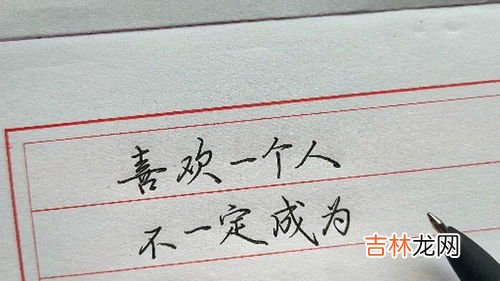 喜欢一个人
不一定成为
吉林龙网